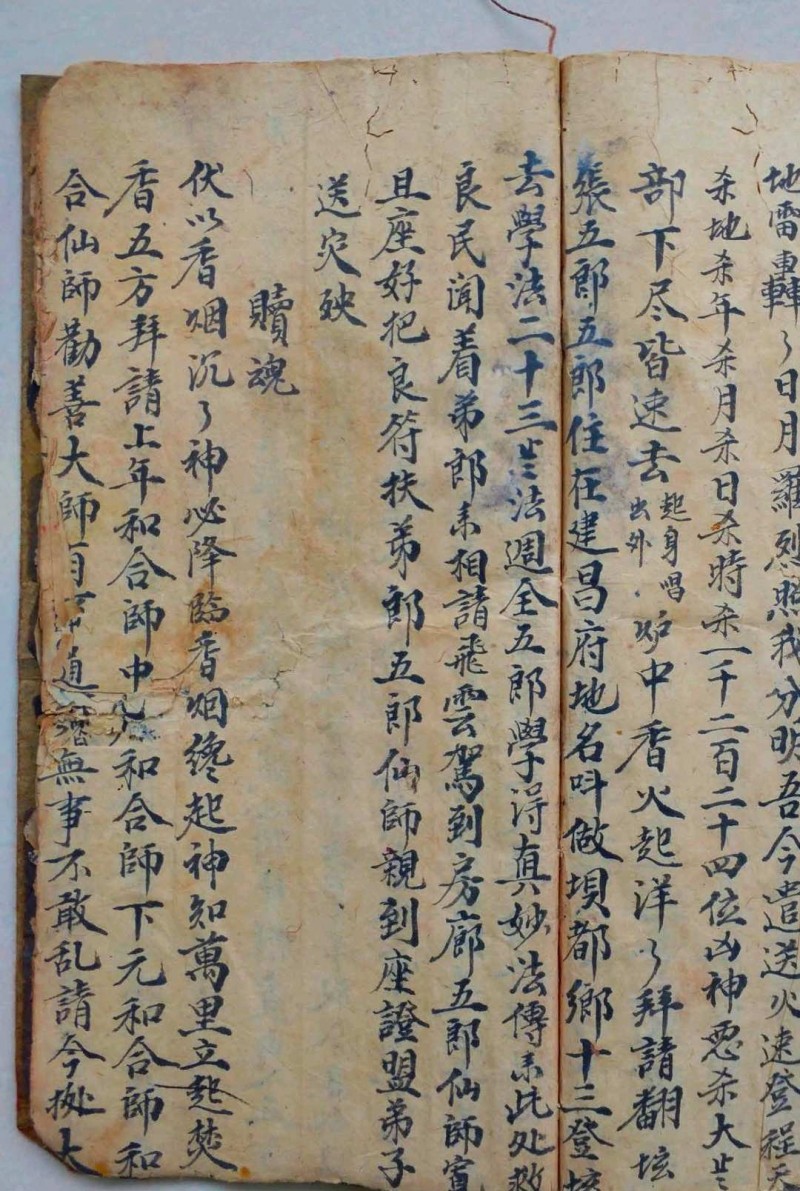 地雷轟々日月羅烈照我分明吾今遣送火速登程天
杀地杀年杀月杀日杀時杀一千二百二十四位凶神恶杀大
部下尽皆速去起身唱出外炉中香火起洋々拜請翻坛
張五郎五郎住在建昌府地名叫做垻都鄉十三登坛
去學法二十三法週全五郎學淂真妙法傳来此处救
良民闻着弟郎来相請飛雲駕到房廊五郎仙師宣
且座好把良符扶弟郎五郎仙師親到座證盟弟子
送灾殃
贖魂
伏以香烟沉々神必降臨香烟纔起神知萬里立起焚
香五方拜請上年和合師中元和合師下元和合師和
合仙師勸善大師道無事不敢乱請今拠大